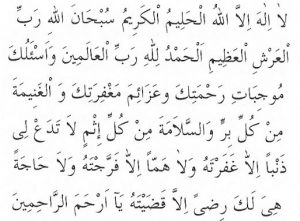 لَا اِلٰهَ اِلَّا اللهُ الْحَلِيمُ الْكَرِيمُ سُبْحَانَ اللهِ رَبِّ
الْعَرْشِ الْعَظِيمِ اَلْحَمْدُ لِلّٰهِ رَبِّ الْعَالَمِينَ وَاَسْئَلُكَ
مُوجِبَاتِ رَحْمَتِكَ وَعَزَائِمَ مَغْفِرَتِكَ وَ الْغَنِيمَةَ
مِنْ كُلِّ بِرٍّ وَالسَّلَامَةَ مِنْ كُلِّ اِثْمٍ لَا تَدَعْ لِى
ذَنْبًا اِلَّا غَفَرْتَهُ وَلَا هَمًّا اِلَّا فَرَّجْتَهُ وَلَا حَاجَةً
هِىَ لَكَ رِضىً اِلَّا قَضَيْتَهُ يَآ اَرْحَمَ الرَّاحِمِينَ